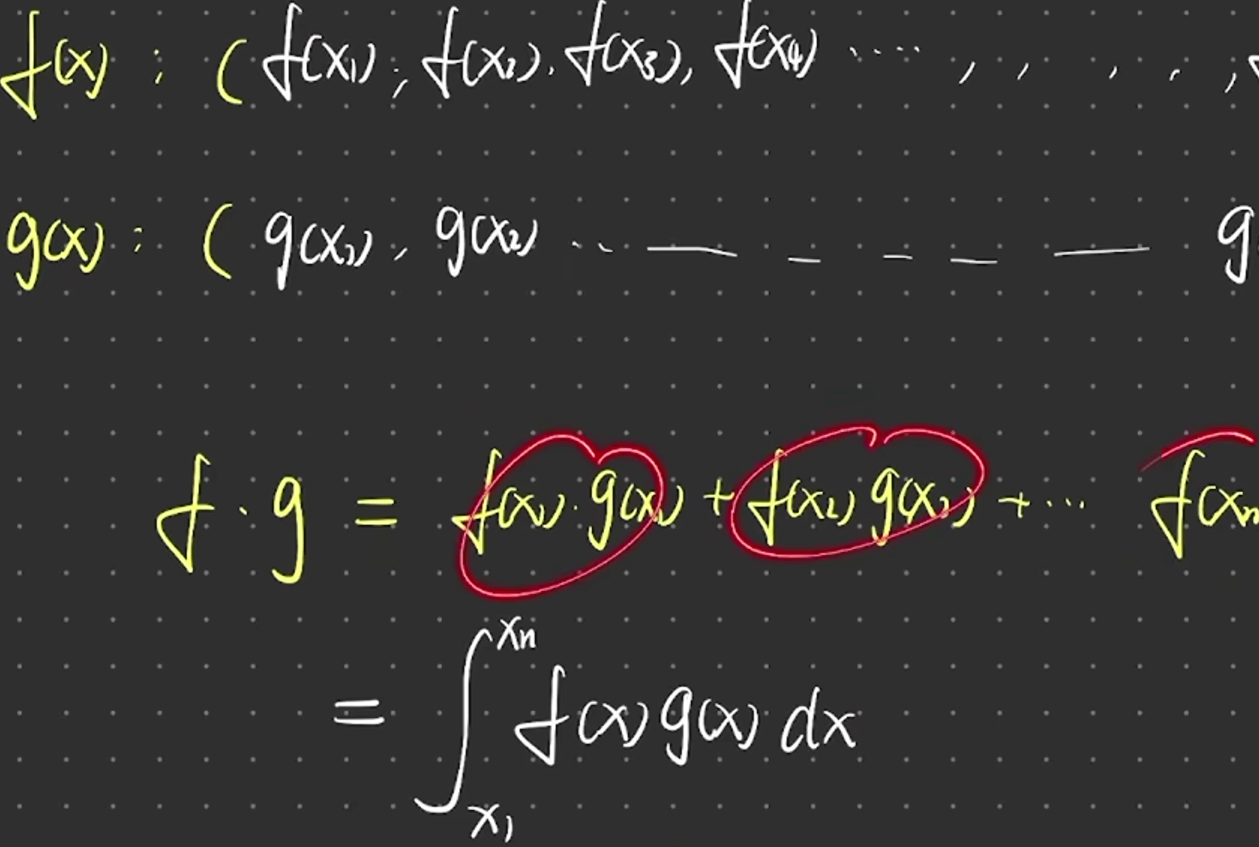 f(x) : ( f(x₁), f(x₂), f(x₃), f(x₄) ..... , , , , ,
g(x) : ( g(x₁), g(x₂) ... — – – – — g
f · g = f(x₁) · g(x₁) + f(x₂) g(x₂) + ... f(xₙ
= ∫ₓ₁ˣⁿ f(x) g(x) dx